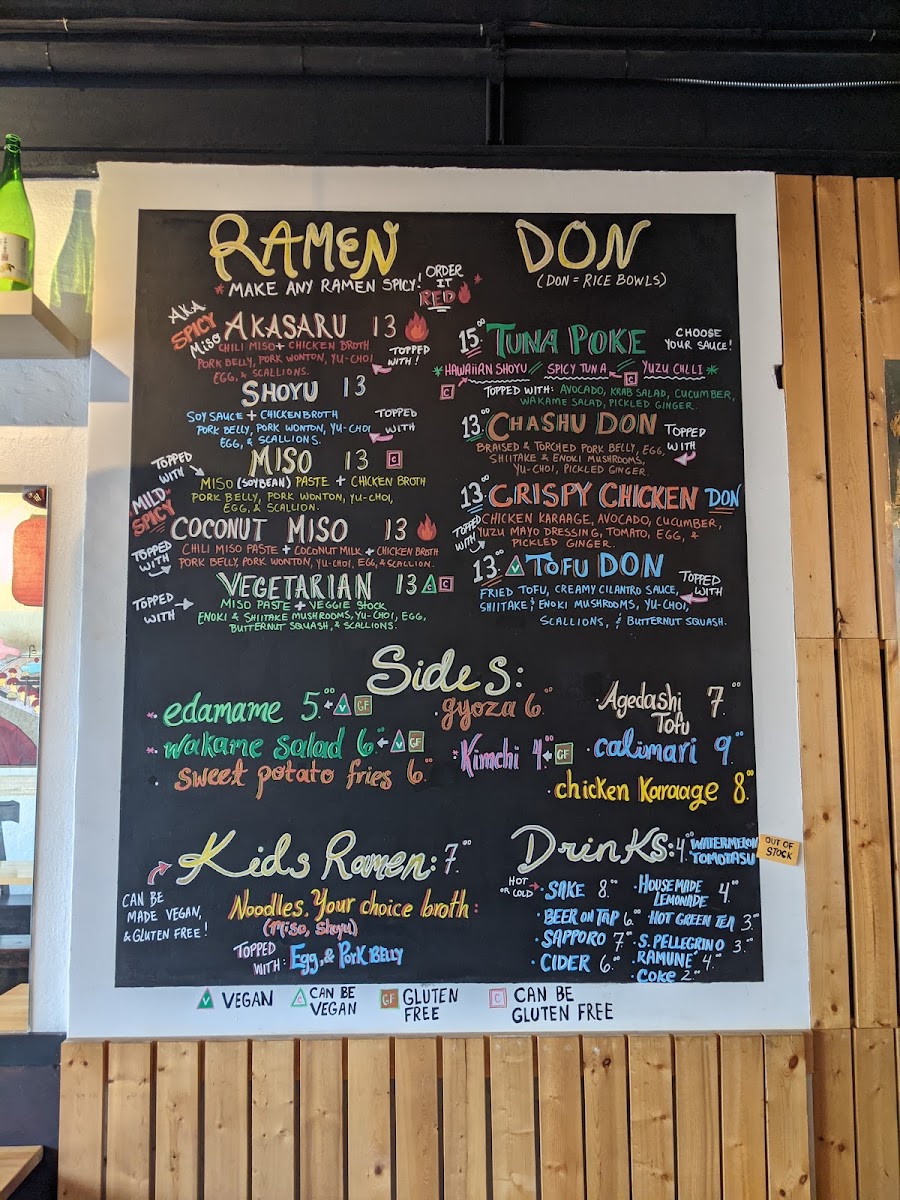 RAMEN
* MAKE ANY RAMEN SPICY! ORDER IT RED *
AKA SPICY MISO
AKASARU 13
CHILI MISO + CHICKEN BROTH
PORK BELLY, PORK WONTON, YU-CHOI
EGG, & SCALLIONS.
TOPPED WITH!
SHOYU 13
SOY SAUCE + CHICKEN BROTH
PORK BELLY, PORK WONTON, YU-CHOI
EGG, & SCALLIONS.
TOPPED WITH
MISO 13 C
TOPPED WITH
MISO (SOYBEAN) PASTE + CHICKEN BROTH
PORK BELLY, PORK WONTON, YU-CHOI,
EGG, & SCALLION.
MILD SPICY
COCONUT MISO 13
TOPPED WITH
CHILI MISO PASTE + COCONUT MILK + CHICKEN BROTH
PORK BELLY, PORK WONTON, YU-CHOI, EGG, & SCALLION.
VEGETARIAN 13 C C
TOPPED WITH
MISO PASTE + VEGGIE STOCK
ENOKI & SHIITAKE MUSHROOMS, YU-CHOI, EGG,
BUTTERNUT SQUASH, & SCALLIONS.
DON
(DON = RICE BOWLS)
15.00 TUNA POKE
CHOOSE YOUR SAUCE!
* HAWAIIAN SHOYU // SPICY TUNA // YUZU CHILI *
C C
TOPPED WITH: AVOCADO, KRAB SALAD, CUCUMBER,
WAKAME SALAD, PICKLED GINGER.
13.00 CHASHU DON
TOPPED WITH
BRAISED & TORCHED PORK BELLY, EGG,
SHIITAKE & ENOKI MUSHROOMS,
YU-CHOI, PICKLED GINGER.
13.00 CRISPY CHICKEN DON
TOPPED WITH
CHICKEN KARAAGE, AVOCADO, CUCUMBER,
YUZU MAYO DRESSING, TOMATO, EGG, &
PICKLED GINGER.
13.00 V TOFU DON
TOPPED WITH
FRIED TOFU, CREAMY CILANTRO SAUCE,
SHIITAKE & ENOKI MUSHROOMS, YU-CHOI,
SCALLIONS, & BUTTERNUT SQUASH.
Sides:
* edamame 5.00 V GF
* wakame salad 6.00 V GF
· sweet potato fries 6.00
· gyoza 6.00
* Kimchi 4.00 GF
· Agedashi Tofu 7.00
· calimari 9.00
· chicken Karaage 8.00
Kids Ramen: 7.00
CAN BE MADE VEGAN, & GLUTEN FREE!
Noodles. Your choice broth:
(Miso, Shoyu)
TOPPED WITH: Egg, & PORK BELLY
Drinks:
4.00 WATERMELON TOMOTASU
OUT OF STOCK
HOT OR COLD
· SAKE 8.00
· BEER ON TAP 6.00
· SAPPORO 7.00
· CIDER 6.00
· HOUSEMADE LEMONADE 4.00
· HOT GREEN TEA 3.00
· S.PELLEGRINO 3.00
· RAMUNE 4.00
· COKE 2.00
V VEGAN
C CAN BE VEGAN
GF GLUTEN FREE
C CAN BE GLUTEN FREE